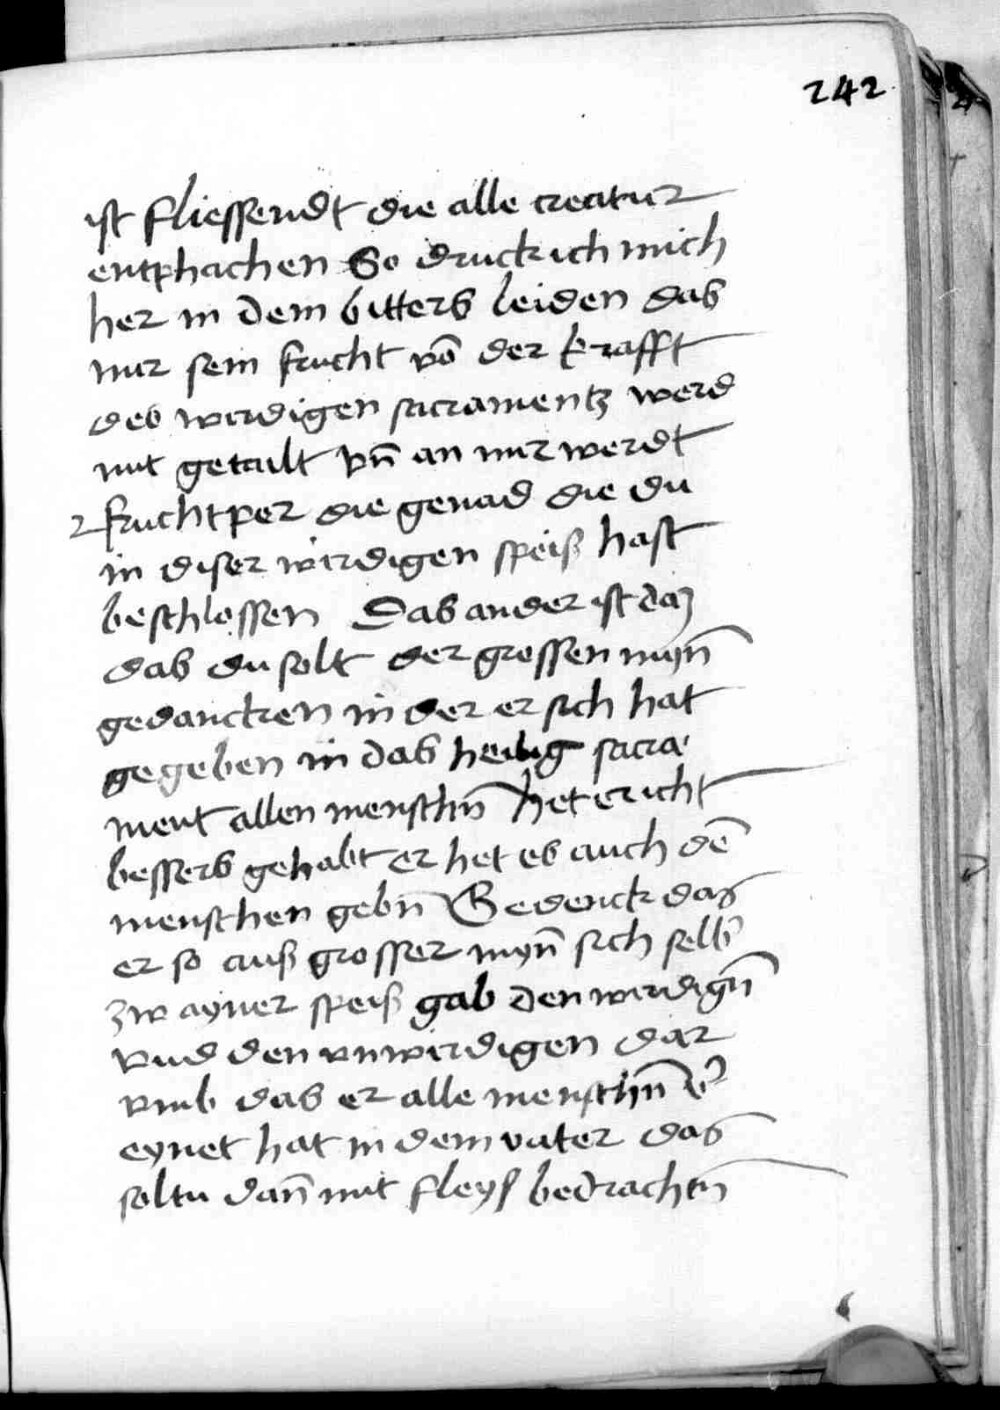 242
ist fliessendt die alle creatur
entphachen So druck ich mich
her in dem bitters leiden das
mir sein frucht vō der krafft
des wirdigen sacramentz werd
mit getailt vn̄ an mir werdt
fruchtper die genad die du
in diser wirdigen speiß hast
beschlossen Das ander ist daz
das du solt der grossen myn̄
gedancken in der er sich hat
gegeben in das heilig sacra
ment allen menschn̄ het er icht
bessers gehabt er het es auch dē
menschen gebn̄ Gedenck das
er so auß grosser myn̄ sich selb
zw ayner speiß gab den wirdign̄
vnd den vnwirdigen dar
vmb das er alle menschn̄ v
eynet hat in dem vater das
soltu dan̄ mit fleys bedrachtn̄